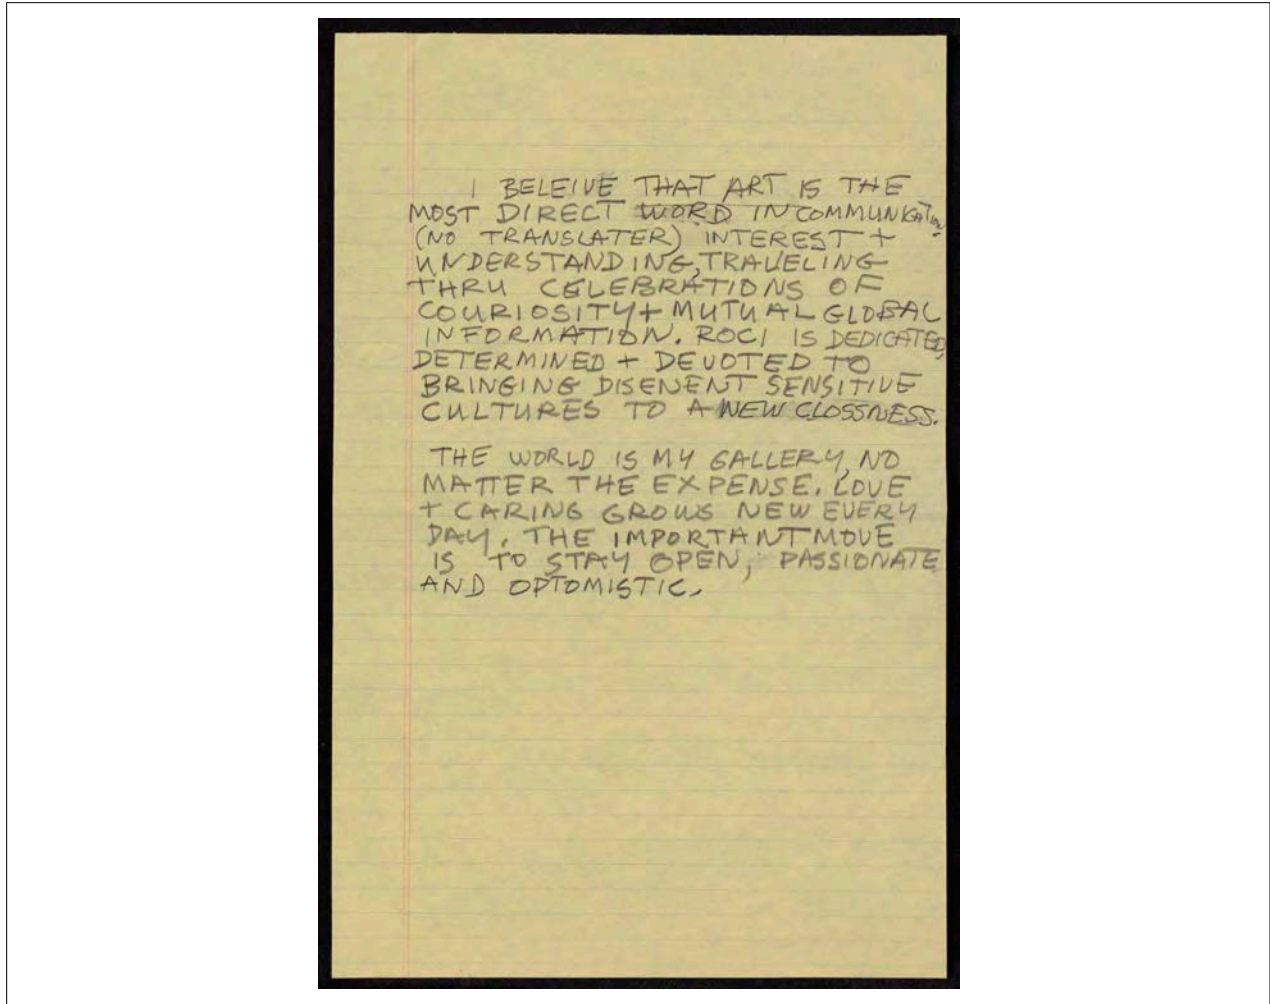 I BELEIVE THAT ART IS THE
MOST DIRECT WORD IN COMMUNICATION
(NO TRANSLATER) INTEREST +
UNDERSTANDING, TRAVELING
THRU CELEBRATIONS OF
COURIOSITY + MUTUAL GLOBAL
INFORMATION. ROCI IS DEDICATED,
DETERMINED + DEVOTED TO
BRINGING DISENENT SENSITIVE
CULTURES TO A NEW CLOSSNESS.
THE WORLD IS MY GALLERY, NO
MATTER THE EXPENSE. LOVE
+ CARING GROWS NEW EVERY
DAY. THE IMPORTANT MOVE
IS TO STAY OPEN, PASSIONATE
AND OPTOMISTIC.